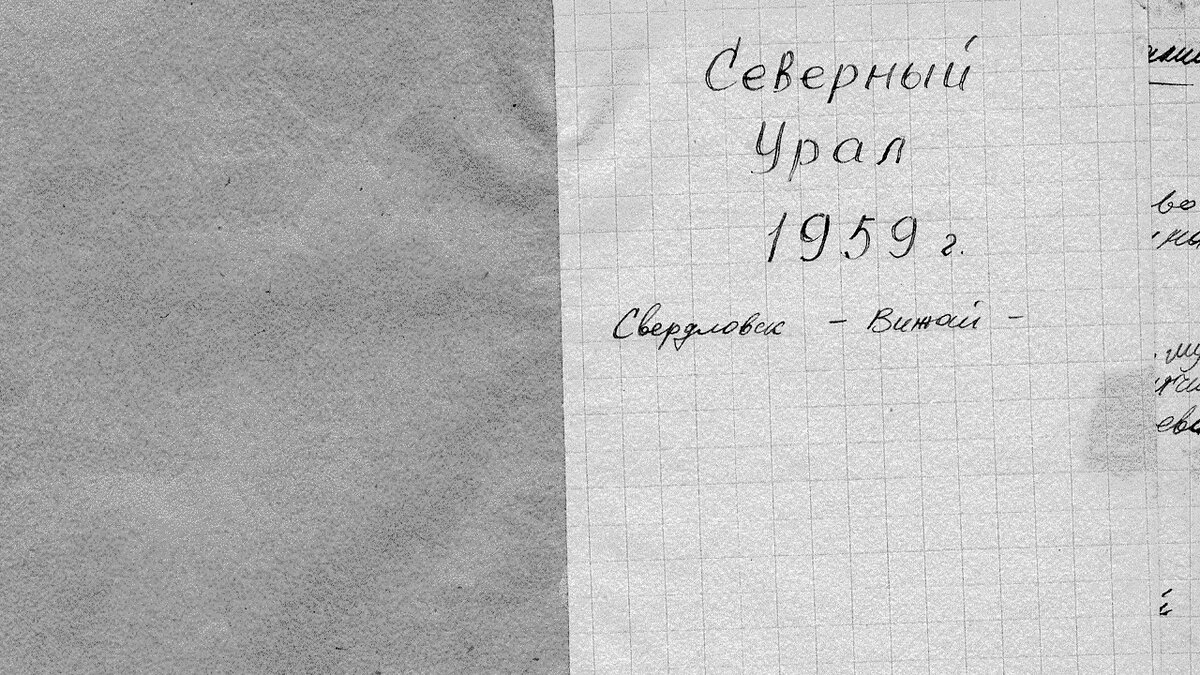 Северный
Урал
1959 г.
Свердловск – Вижай –